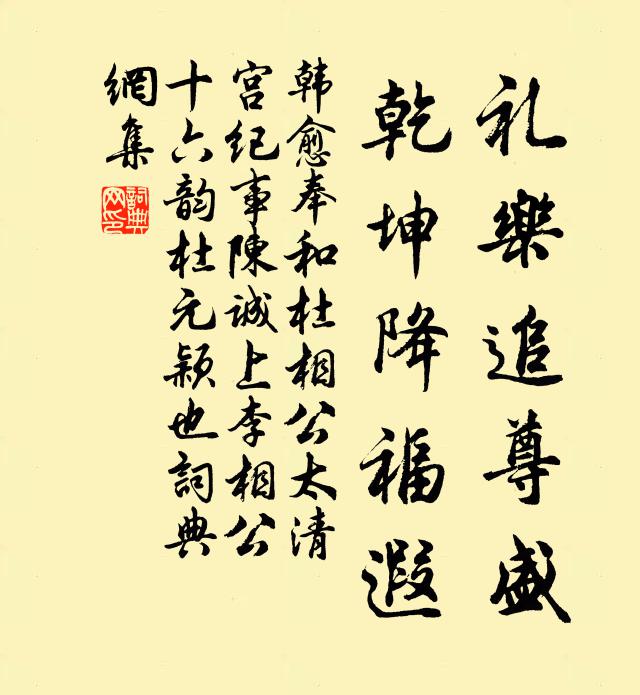 礼樂追尊盛
乾坤降福遐
韩愈奉和杜相公太清
宫纪事陳誠上李相公
十六韵杜元颖也詞典
網集
詞典
网印